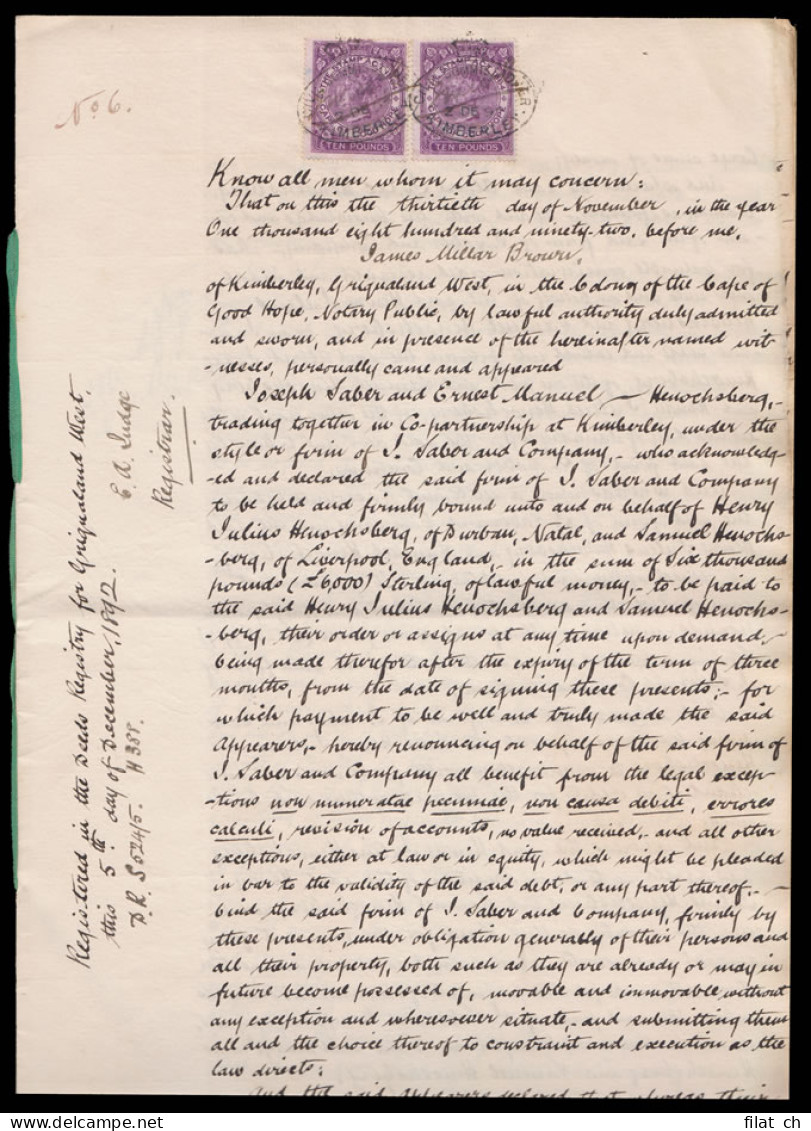 No 6.
TEN POUNDS
TEN POUNDS
KIMBERLEY
KIMBERLEY
Know all men whom it may concern:
That on this the thirtieth day of November, in the year
One thousand eight hundred and ninety-two, before me,
James Millar Brown,
of Kimberley, Griqualand West, in the Colony of the Cape of
Good Hope, Notary Public, by lawful authority duly admitted
and sworn, and in presence of the hereinafter named wit-
-nesses, personally came and appeared
Joseph Saber and Ernest Manuel - Henochsberg,-
trading together in Co-partnership at Kimberley, under the
style or firm of J. Saber and Company,- who acknowledg-
-ed and declared the said firm of J. Saber and Company
to be held and firmly bound unto and on behalf of Henry
Julius Henochsberg, of Durban, Natal, and Samuel Henochs-
-berg, of Liverpool, England,- in the sum of Six thousand
pounds (£6,000) Sterling, of lawful money,- to be paid to
the said Henry Julius Henochsberg and Samuel Henochs-
-berg, their order or assigns at any time upon demand,-
being made therefor after the expiry of the term of three
months, from the date of signing these presents;- for
which payment to be well and truly made the said
Appearers,- hereby renouncing on behalf of the said firm of
J. Saber and Company all benefit from the legal excep-
-tions non numeratae pecuniae, non causa debiti, errores
calculi, revision of accounts, no value received,- and all other
exceptions, either at law or in equity, which might be pleaded
in bar to the validity of the said debt, or any part thereof,-
bind the said firm of J. Saber and Company, firmly by
these presents, under obligation generally of their persons and
all their property, both such as they are already or may in
future become possessed of, movable and immovable without
any exception and wheresoever situate,- and submitting them
all and the choice thereof to constraint and execution as the
law directs:
And the said appearers declared that whereas their
Registered in the Deeds Registry for Griqualand West,
this 5th day of December, 1892.
D.R. S 524/5. H 388.
C. A. Judge
Registrar.
filat ch